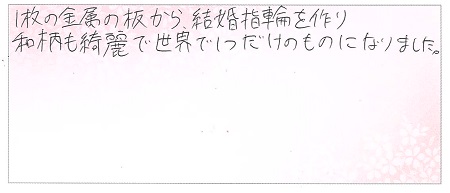 1枚の金属の板から、結婚指輪を作り
和柄も綺麗で世界で1つだけのものになりました。